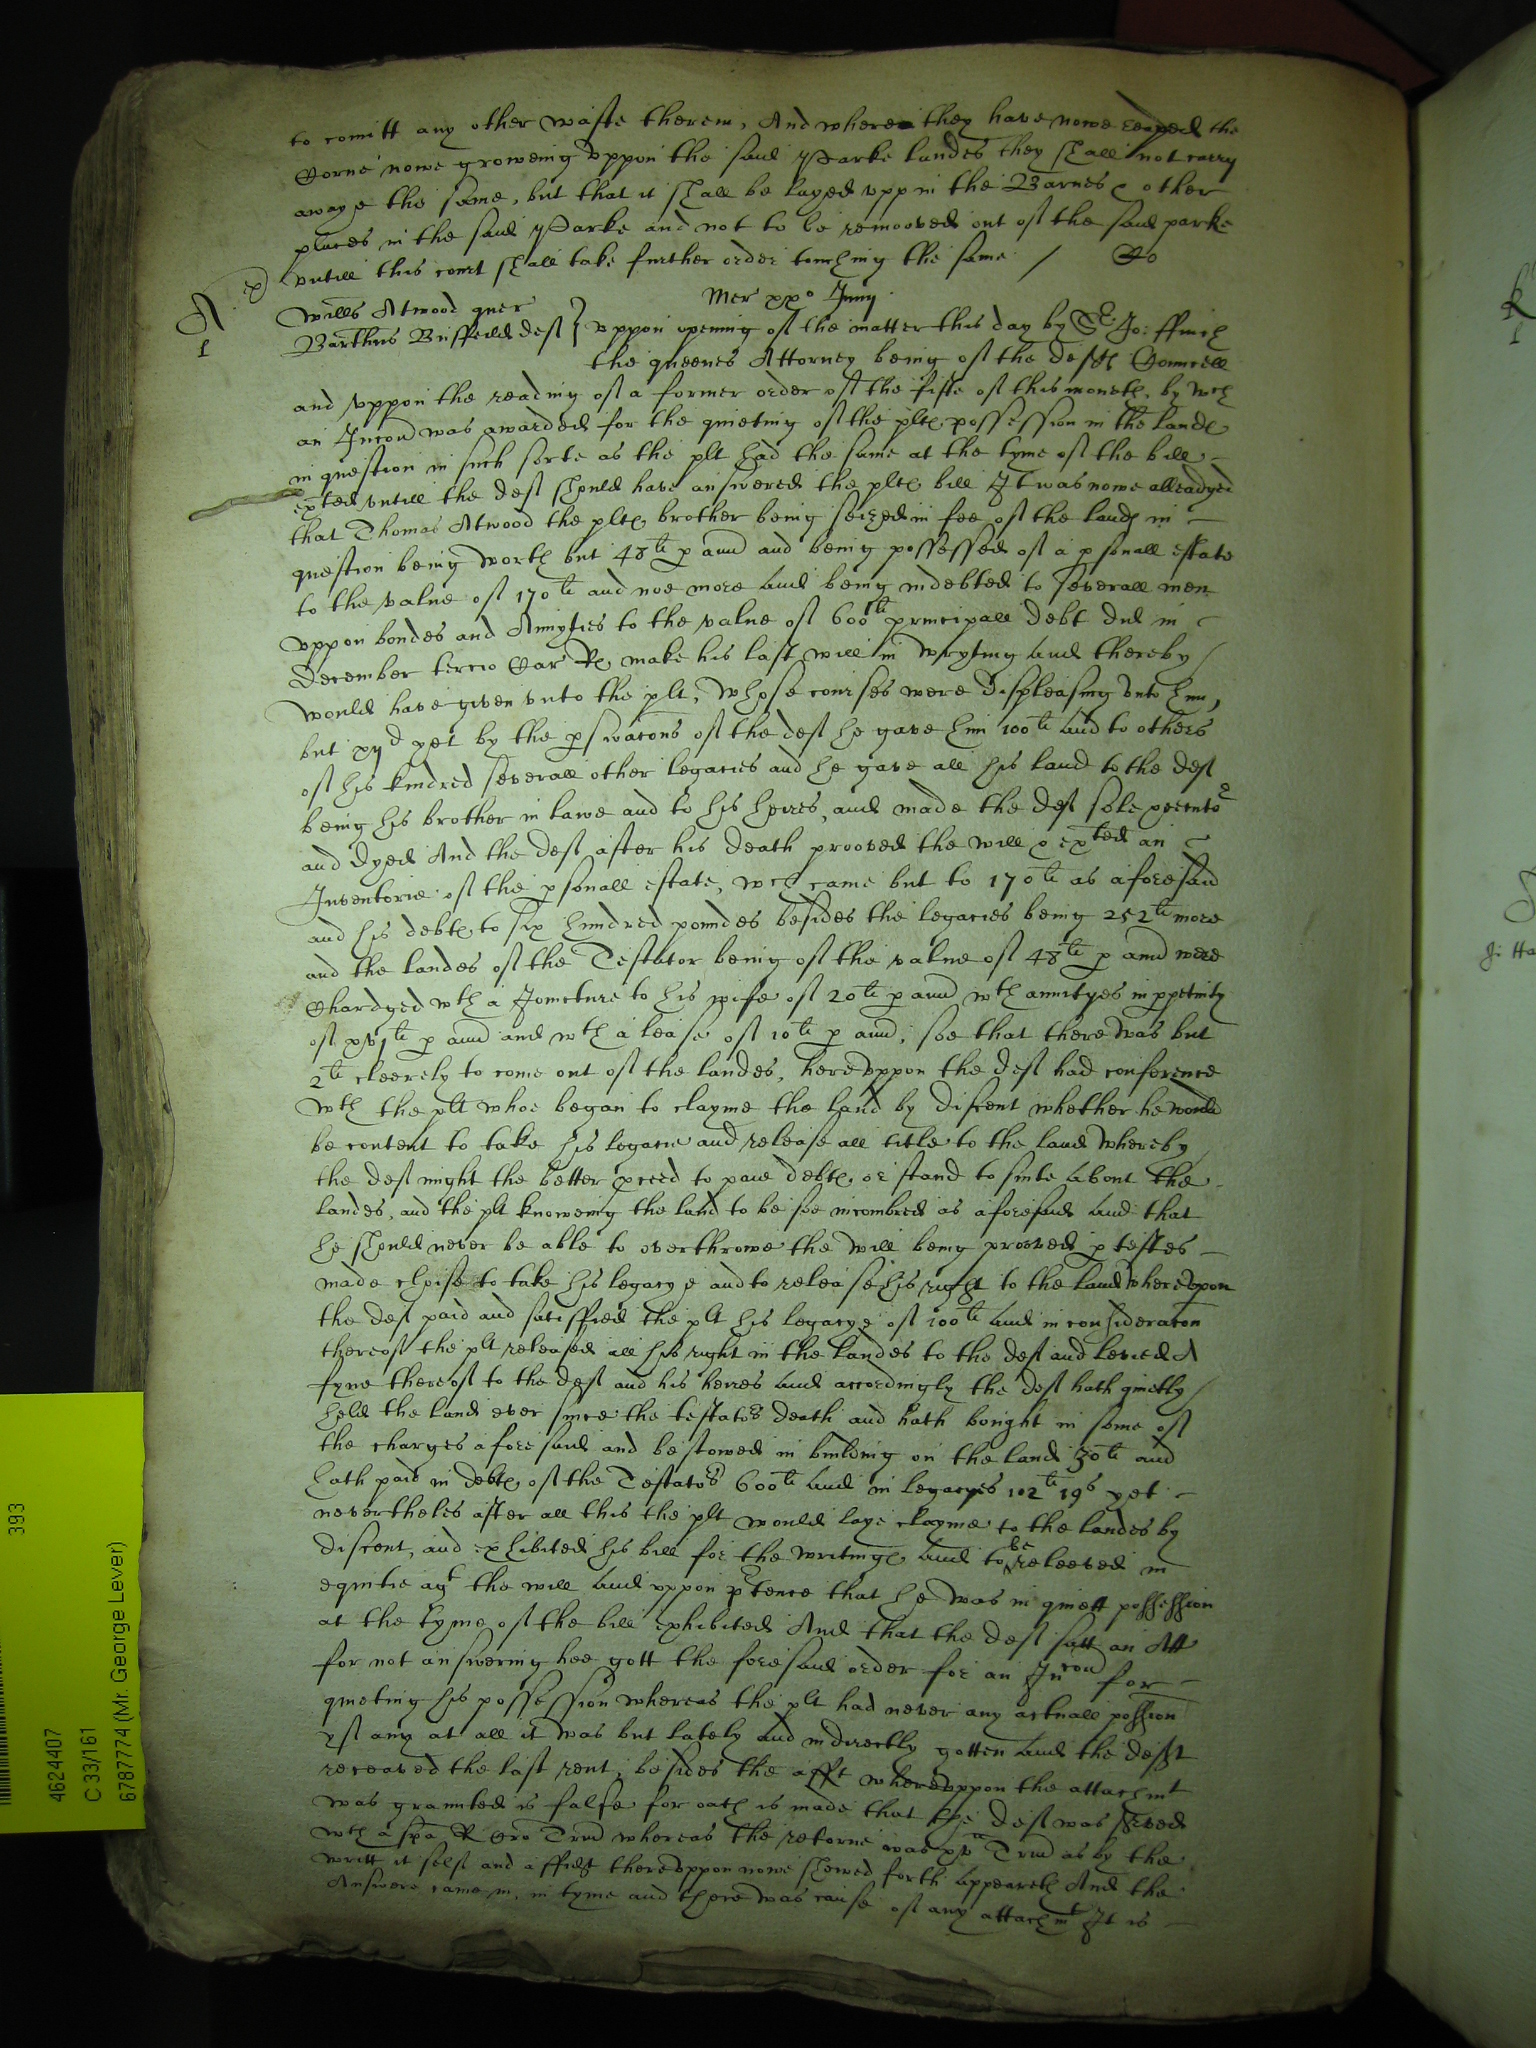 to comitt any other waste therein, And where they have nowe reaped the
Corne nowe groweing vppon the said Parke landes they shall not carry
awaye the same, but that it shall be layed vpp in the Barnes & other
places in the said Parke and not to be remooved out of the said parke
vntill this court shall take further order touching the same /
Mer xxo Junij
A
1
Willms Atwood quer
Barthus deft } vppon opening of the matter this day by Sr. Jo: ffinch
the queenes Attorney being of the defts Councell
and vppon the reading of a former order of the fifte of this moneth, by wch
an Iniuncon was awarded for the quieting of the plts possession in the lands
in question in such sorte as the plt had the same at the tyme of the bill
exted vntill the deft should have answered the plts bill It was nowe alleadged
that Thomas Atwood the plts brother being seized in fee of the lands in
question being worth but 48li p annu and being possessed of a psonall estate
to the value of 170li and noe more And being indebted to severall men
vppon bondes and Anuyties to the value of 600li principall debt did in
December tercio Car Rs make his last will in wryting And thereby
would have given vnto the plt, whose courses were displeasing vnto him,
but xijd yet by the pswacons of the deft he gave him 100li And to others
of his kindred severall other legacies and he gave all his land to the deft
being his brother in lawe and to his heires, and made the deft sole executor
and dyed And the deft after his death prooved the will & exted an
Inventorie of the psonall estate, wch came but to 170li as aforesaid
and his debts to six hundred poundes besides the legacies being 252li more
and the landes of the Testator being of the value of 48li p annu were
Chardged wth a Joincture to his wife of 20li p annu wth annityes in ppetuity
of xvjli p annu and wth a lease of 10li p annu, soe that there was but
2li cleerely to come out of the landes, herevppon the deft had conference
wth the plt whoe began to clayme the land by discent whether he would
be content to take his legacie and release all title to the land whereby
the deft might the better pceed to paie debts or stand to suite about the
landes, and the plt knoweing the land to be soe incombred as aforesaid And that
he should never be able to overthrowe the will being prooved p testes
made choise to take his legacye and to release his right to the land wherevpon
the deft paid and satisffied the plt his legacye of 100li And in consideracon
thereof the plt released all his right in the landes to the deft and levied A
fyne thereof to the deft and his heires And accordingly the deft hath quietly
held the land ever since the testators death and hath bought in some of
the charges aforesaid and bestowed in building on the land 30li and
hath paid in debts of the Testators 600li And in legacyes 102li 19s yet
nevertheles after all this the plt would laye clayme to the landes by
discent, and exhibited his bill for the writings And to be releeved in
equitie agt the will And vppon ptence that he was in quiett possession
at the tyme of the bill exhibited And that the deft satt an Att
for not answering hee gott the foresaid order for an Iniuncon for
quieting his possession whereas the plt had never any actuall possion
yf any at all it was but lately and indirectly gotten And the deft
receaved the last rent, besides the afft wherevppon the attachmt
was graunted is false for oath is made that the deft was served
wth a spa R Cro Trin whereas the retorne was xva Trin as by the
writt it self and affidt therevppon nowe shewed forth Appeareth And the
Answere came in, in tyme and there was cause of any attachmt It is
393
4624407
C 33/161
6787774 (Mr. George Lever)